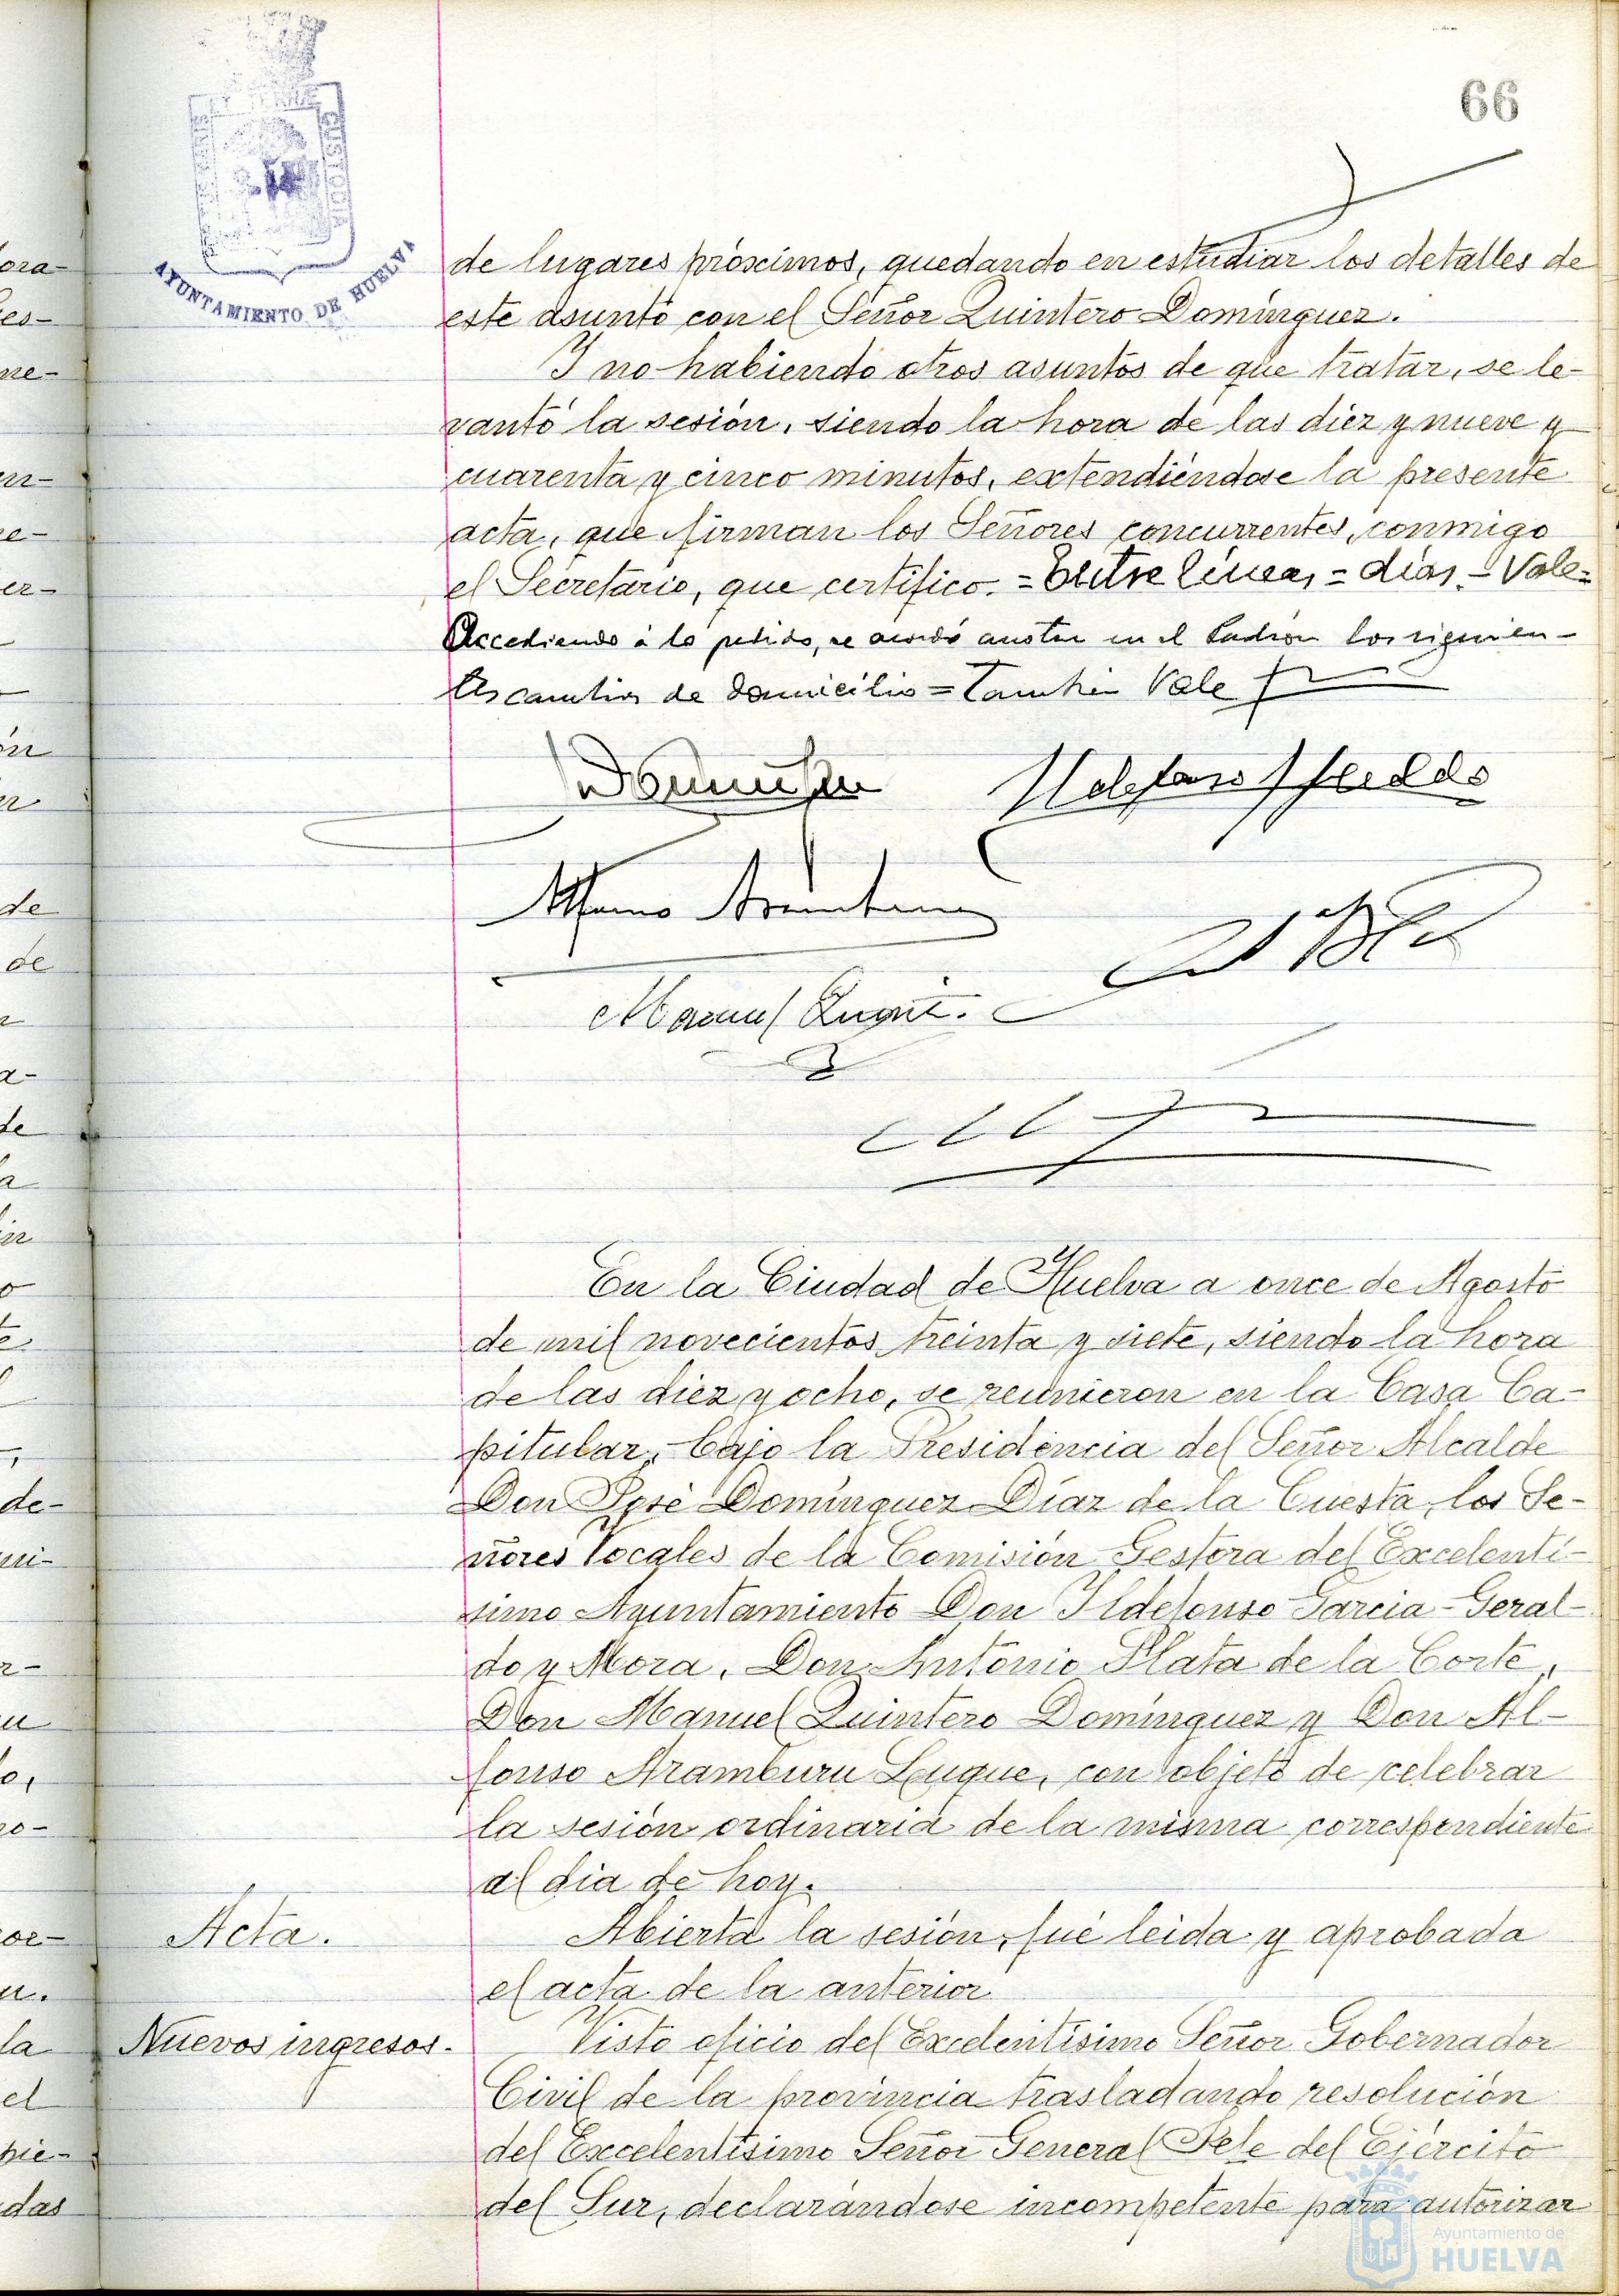 66
AYUNTAMIENTO DE HUELVA
CUSTODIA
de lugares próximos, quedando en estudiar los detalles de
este asunto con el Señor Quintero Domínguez.
Y no habiendo otros asuntos de que tratar, se le-
vantó la sesión, siendo la hora de las diez y nueve y
cuarenta y cinco minutos, extendiéndose la presente
acta, que firman los Señores concurrentes, conmigo
el Secretario, que certifico. = Entre líneas = días. = Vale =
Accediendo á lo pedido, se acordó anotar en el Padrón los siguien-
tes cambios de domicilio = También Vale
En la Ciudad de Huelva a once de Agosto
de mil novecientos treinta y siete, siendo la hora
de las diez y ocho, se reunieron en la Casa Ca-
pitular, bajo la Presidencia del Señor Alcalde
Don José Domínguez Díaz de la Cuesta, los Se-
ñores Vocales de la Comisión Gestora del Excelentí-
simo Ayuntamiento Don Ildefonso Garcia-Geral-
do y Mora, Don Antonio Plata de la Corte,
Don Manuel Quintero Domínguez y Don Al-
fonso Aramburu Luque, con objeto de celebrar
la sesión ordinaria de la misma correspondiente
al dia de hoy.
Acta.
Abierta la sesión, fué leida y aprobada
el acta de la anterior
Nuevos ingresos.
Visto oficio del Excelentísimo Señor Gobernador
Civil de la provincia trasladando resolución
del Excelentísimo Señor General Jefe del Ejército
del Sur, declarándose incompetente para autorizar
Ayuntamiento de
HUELVA